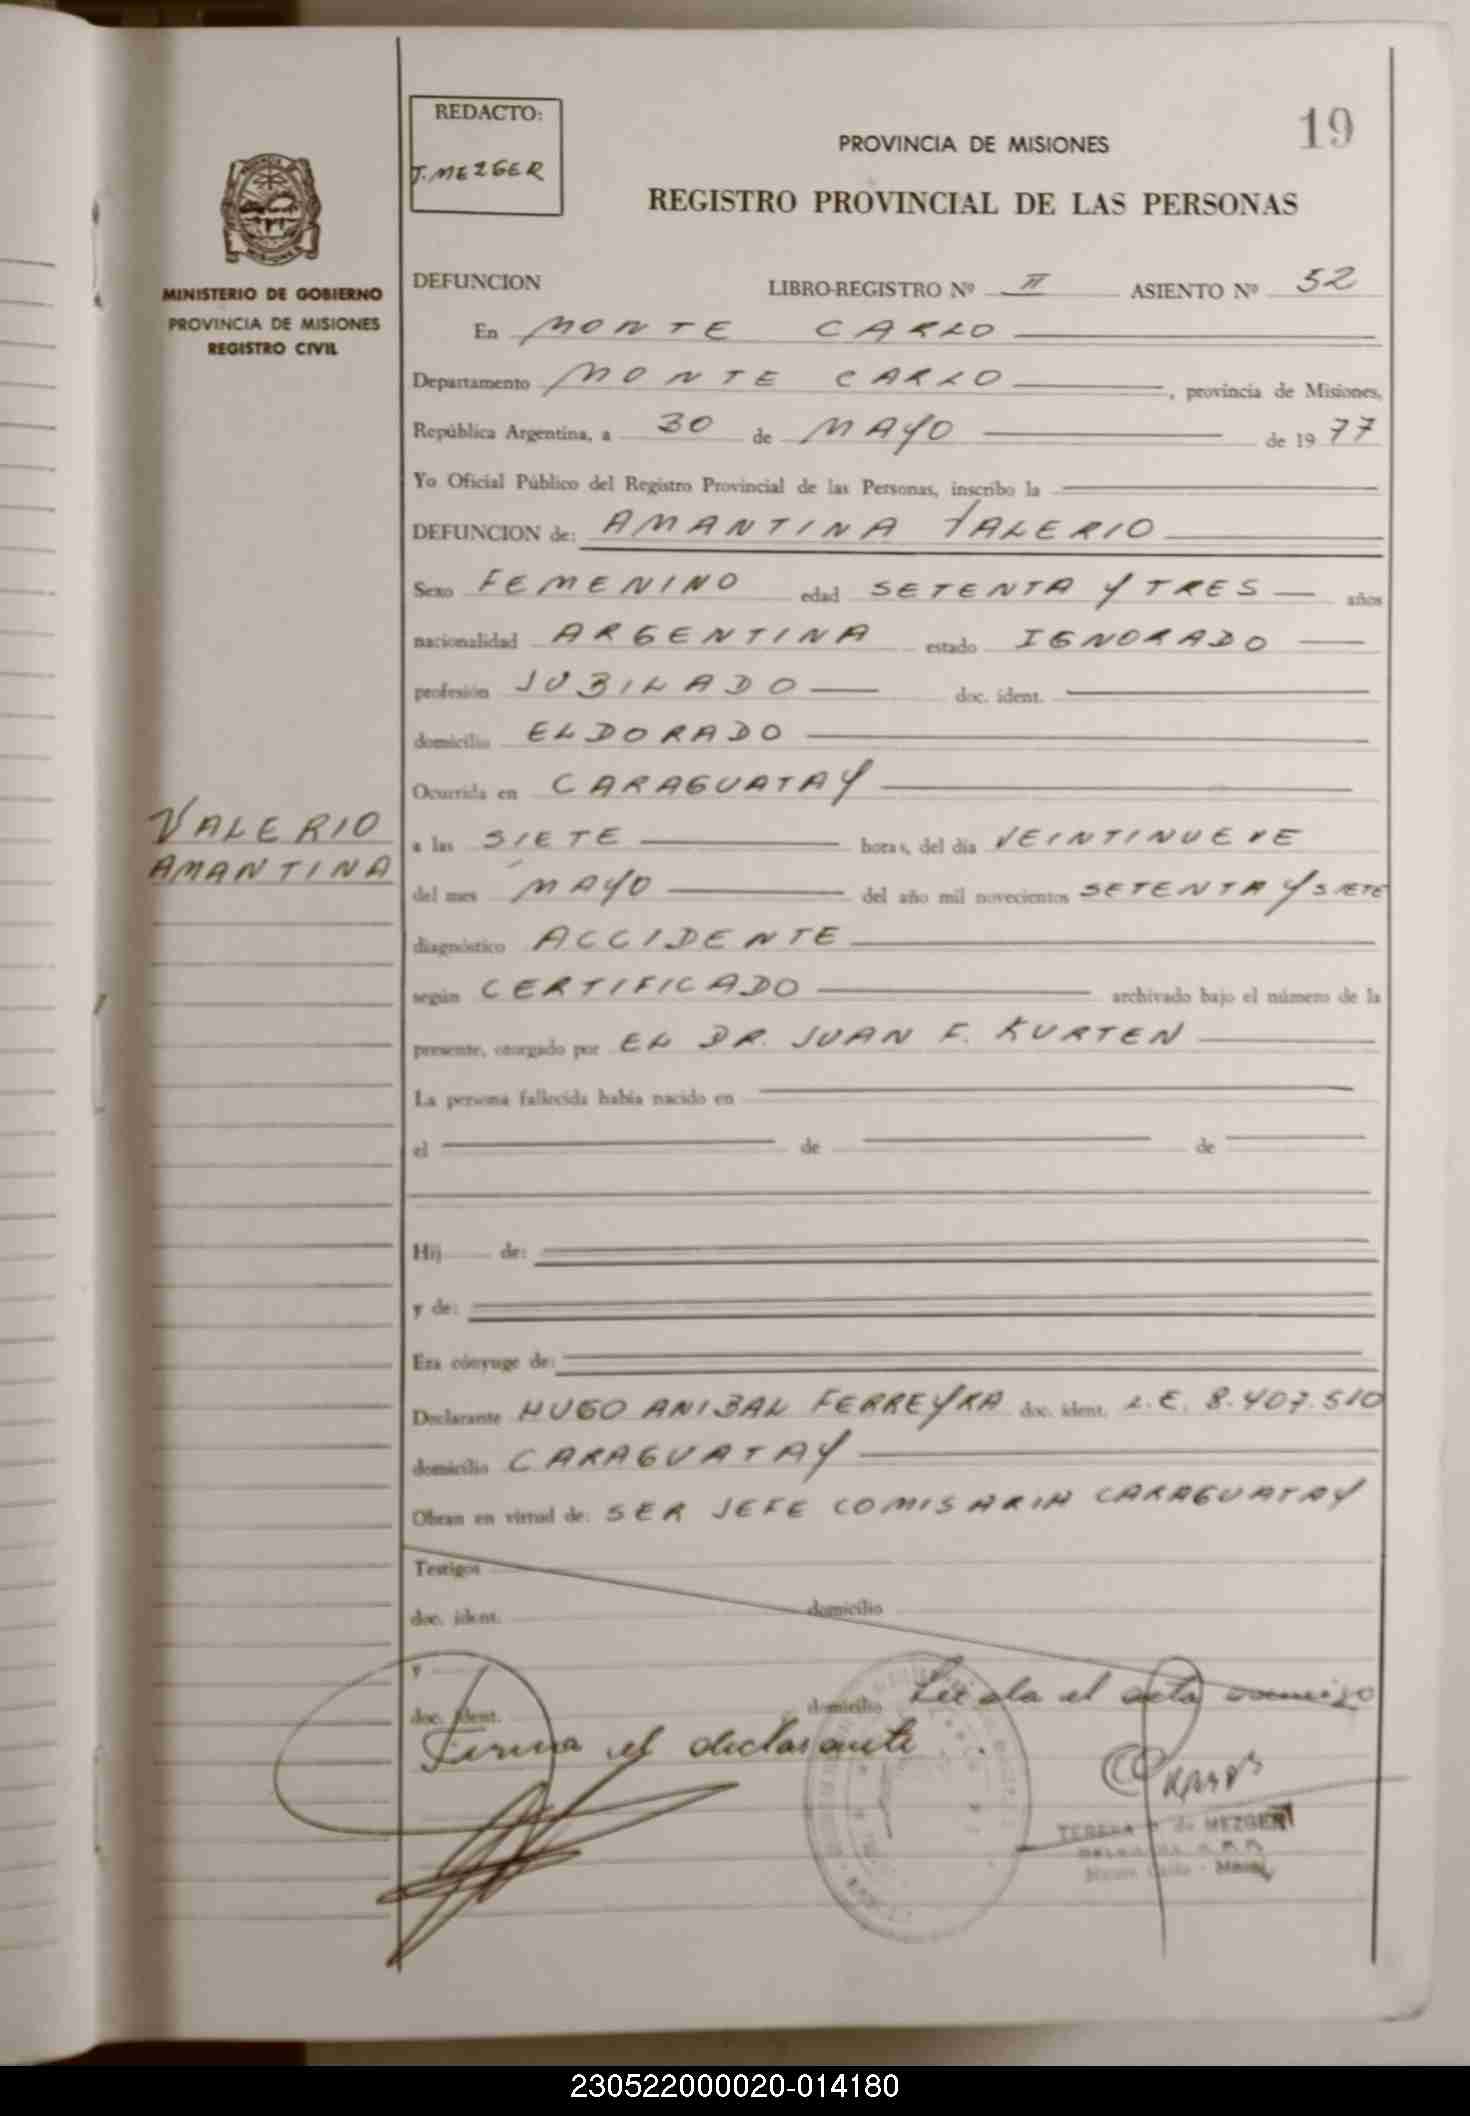 REDACTO:
J. MEZGER
19
PROVINCIA DE MISIONES
REGISTRO PROVINCIAL DE LAS PERSONAS
MINISTERIO DE GOBIERNO
PROVINCIA DE MISIONES
REGISTRO CIVIL
DEFUNCION LIBRO-REGISTRO Nº II ASIENTO Nº 52
En MONTE CARLO
Departamento MONTE CARLO, provincia de Misiones,
República Argentina, a 30 de MAYO de 1977
Yo Oficial Público del Registro Provincial de las Personas, inscribo la
DEFUNCION de: AMANTINA VALERIO
Sexo FEMENINO edad SETENTA Y TRES años
nacionalidad ARGENTINA estado IGNORADO
profesión JUBILADO doc. ident.
domicilio ELDORADO
Ocurrida en CARAGUATAY
VALERIO
AMANTINA
a las SIETE horas, del día VEINTINUEVE
del mes MAYO del año mil novecientos SETENTA Y SIETE
diagnóstico ACCIDENTE
según CERTIFICADO archivado bajo el número de la
presente, otorgado por EL DR. JUAN F. KURTEN
La persona fallecida había nacido en
el de de
Hij de:
y de:
Era cónyuge de:
Declarante HUGO ANIBAL FERREYRA doc. ident. L.E. 8.407.510
domicilio CARAGUATAY
Obran en virtud de: SER JEFE COMISARIA CARAGUATAY
Testigos
doc. ident. domicilio
y
doc. ident. domicilio Leída el acta conmigo
Firma el declarante
TERESA de MEZGER
Monte Carlo - Mnes.
230522000020-014180